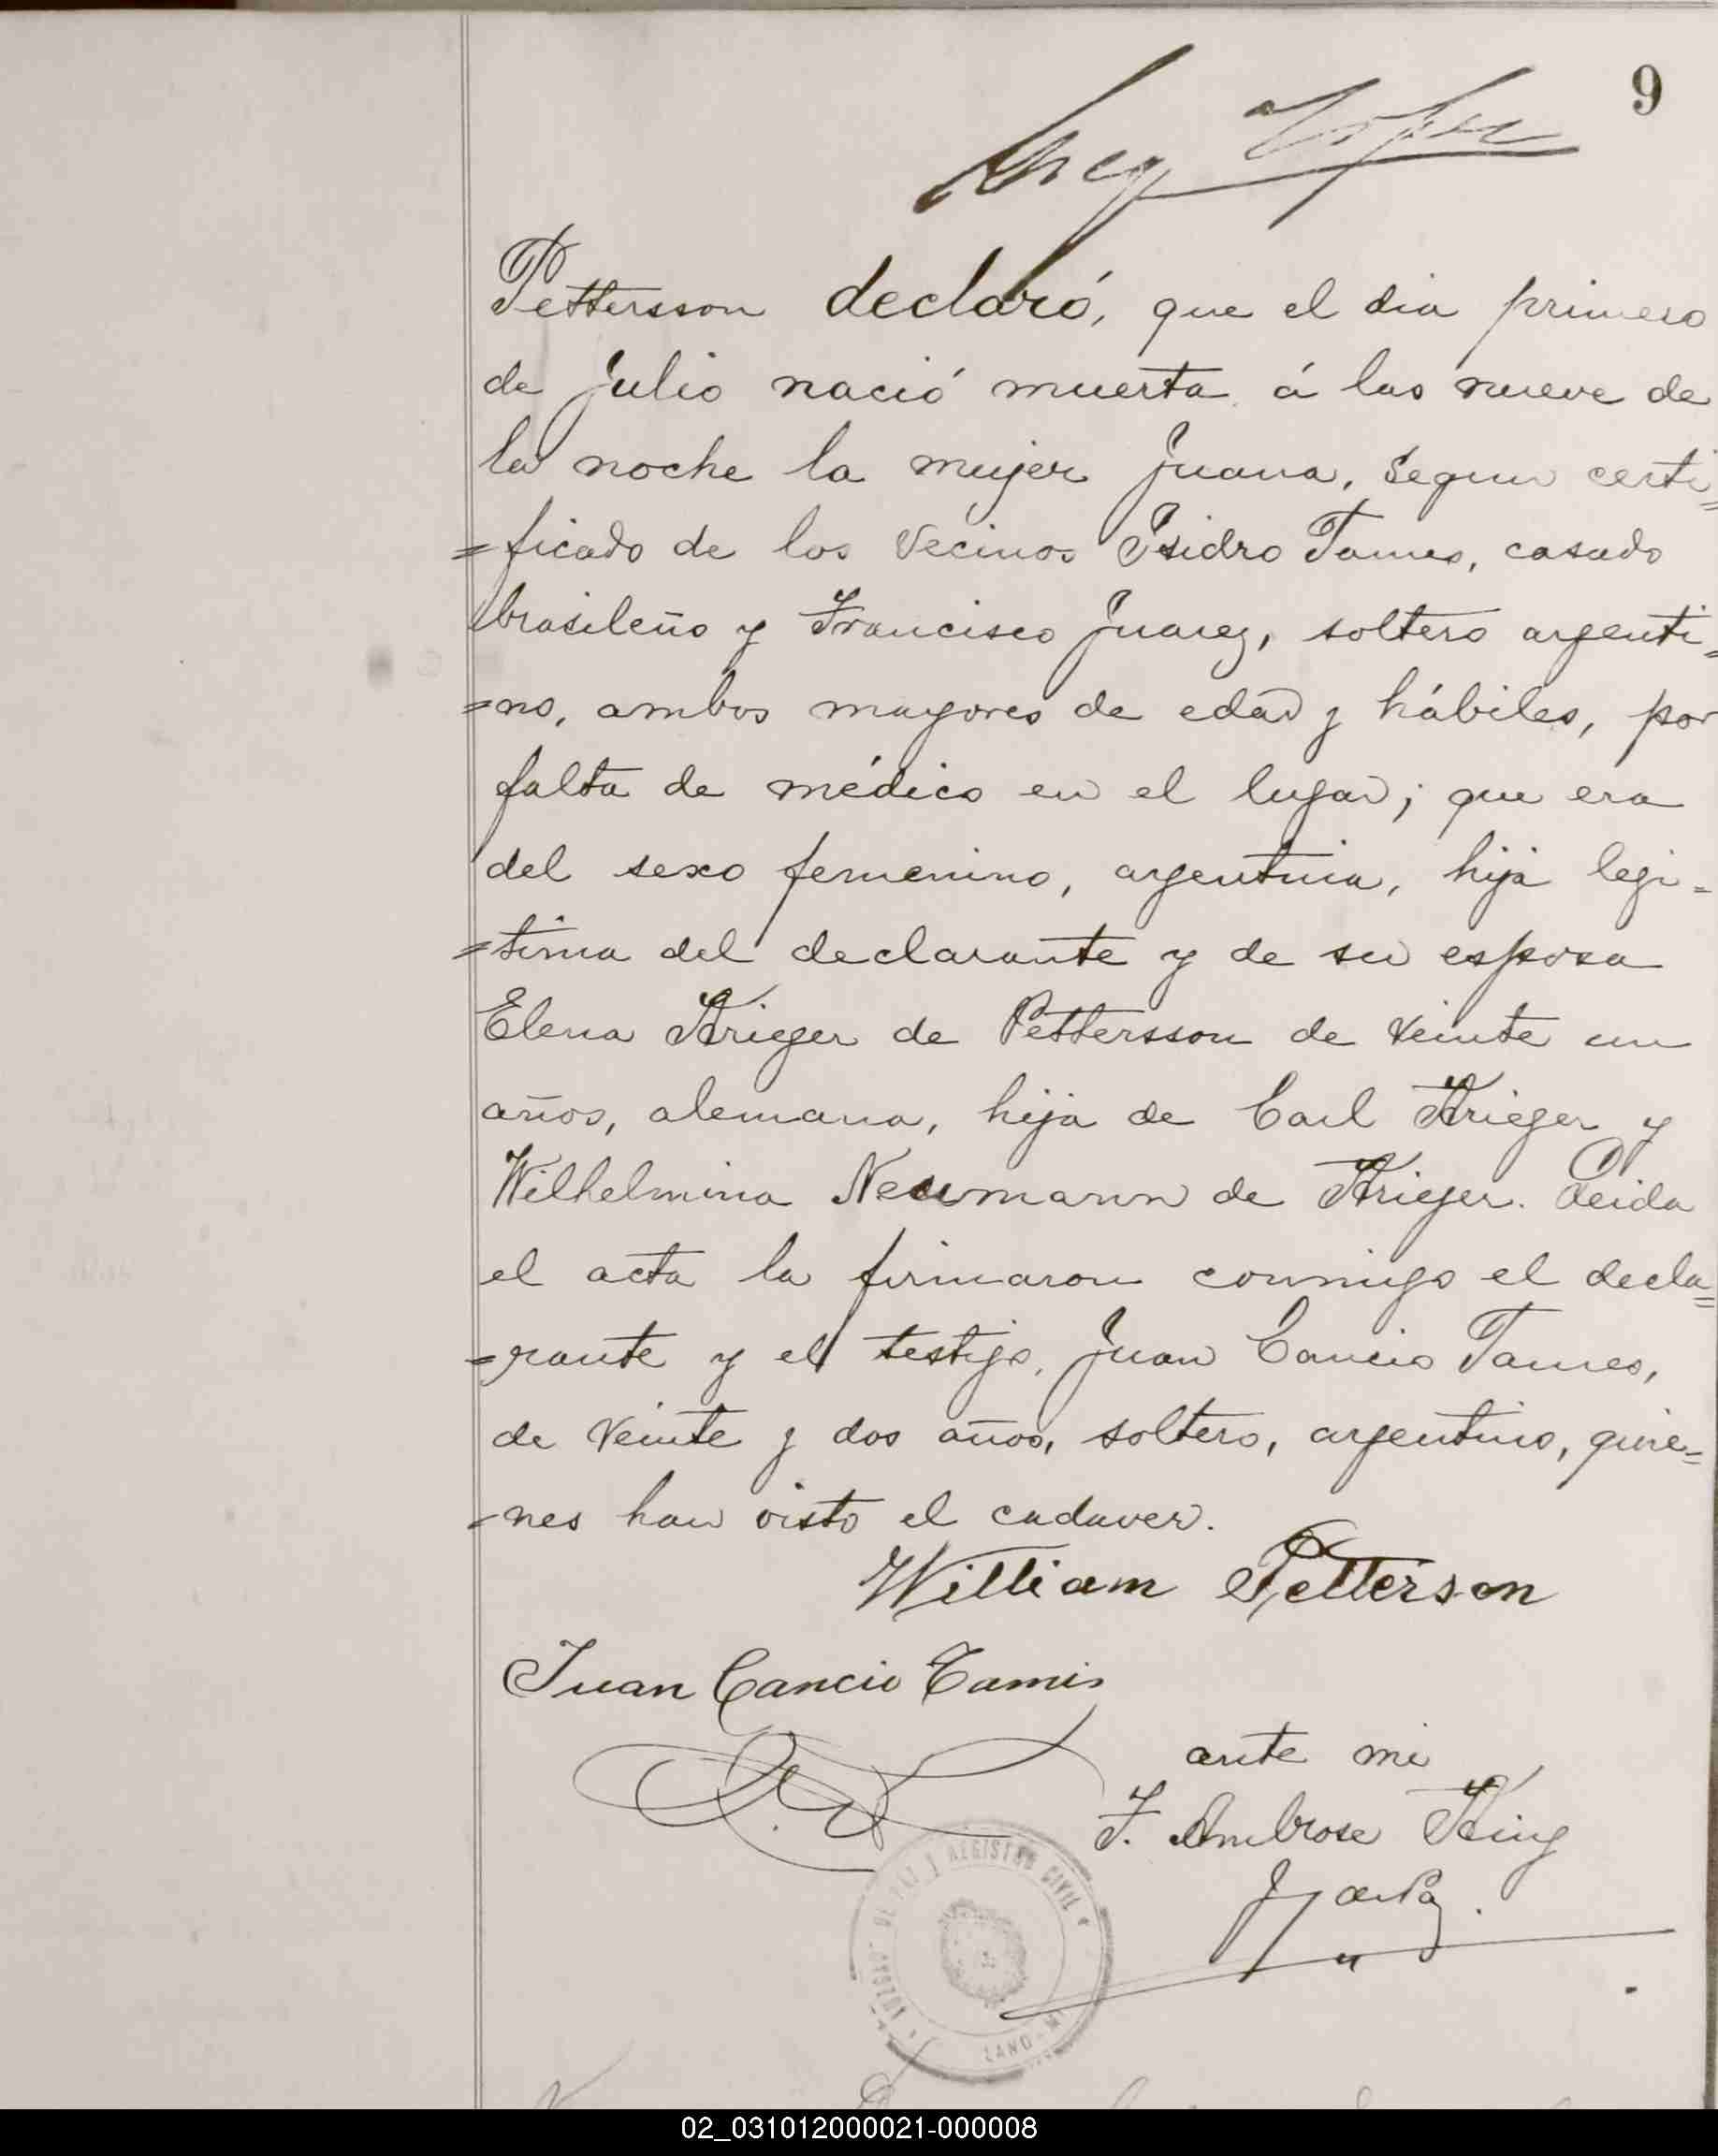 9
Pettersson declaró, que el dia primero
de Julio nació muerta á las nueve de
la noche la mujer Juana, segun certi=
=ficado de los vecinos Isidro Tames, casado
brasileño y Francisco Juarez, soltero argenti=
=no, ambos mayores de edad y hábiles, por
falta de médico en el lugar; que era
del sexo femenino, argentina, hija legi=
=tima del declarante y de su esposa
Elena Krieger de Pettersson de veinte un
años, alemana, hija de Carl Krieger y
Wilhelmina Neumann de Krieger. Leida
el acta la firmaron conmigo el decla=
=rante y el testigo, Juan Cancio Tames,
de veinte y dos años, soltero, argentino, quie=
=nes han visto el cadaver.
William Petterson
Juan Cancio Tamis
ante mi
F. Ambrose King
J de Paz
REGISTRO CIVIL
02_031012000021-000008